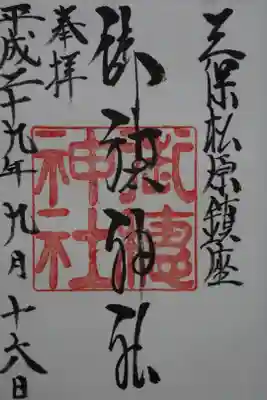 三保松原鎮座
御穂神社
奉拝
平成二十九年九月十六日
御穂神社